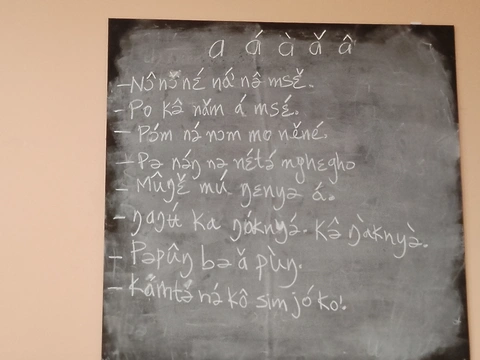 a á à ǎ â
– Nɔ̂ nɔ̌ nɛ́ ŋá nə̂ msɛ̌.
– Po kə̂ nǎm á msɛ́.
– Pɔ́m nə́ nɔm mo něné.
– Pə náŋ nə nɛ́tə́ mghɛghɔ
– Mûŋɛ̌ mú ŋɛnyə á.
– ŋaŋʉ́ ka ŋáknyə́. Kə̂ ŋàknyə̀.
– Pəpûŋ bə ǎ pùŋ.
– Kǎmtə́ nə́ kô sim jó ko!.